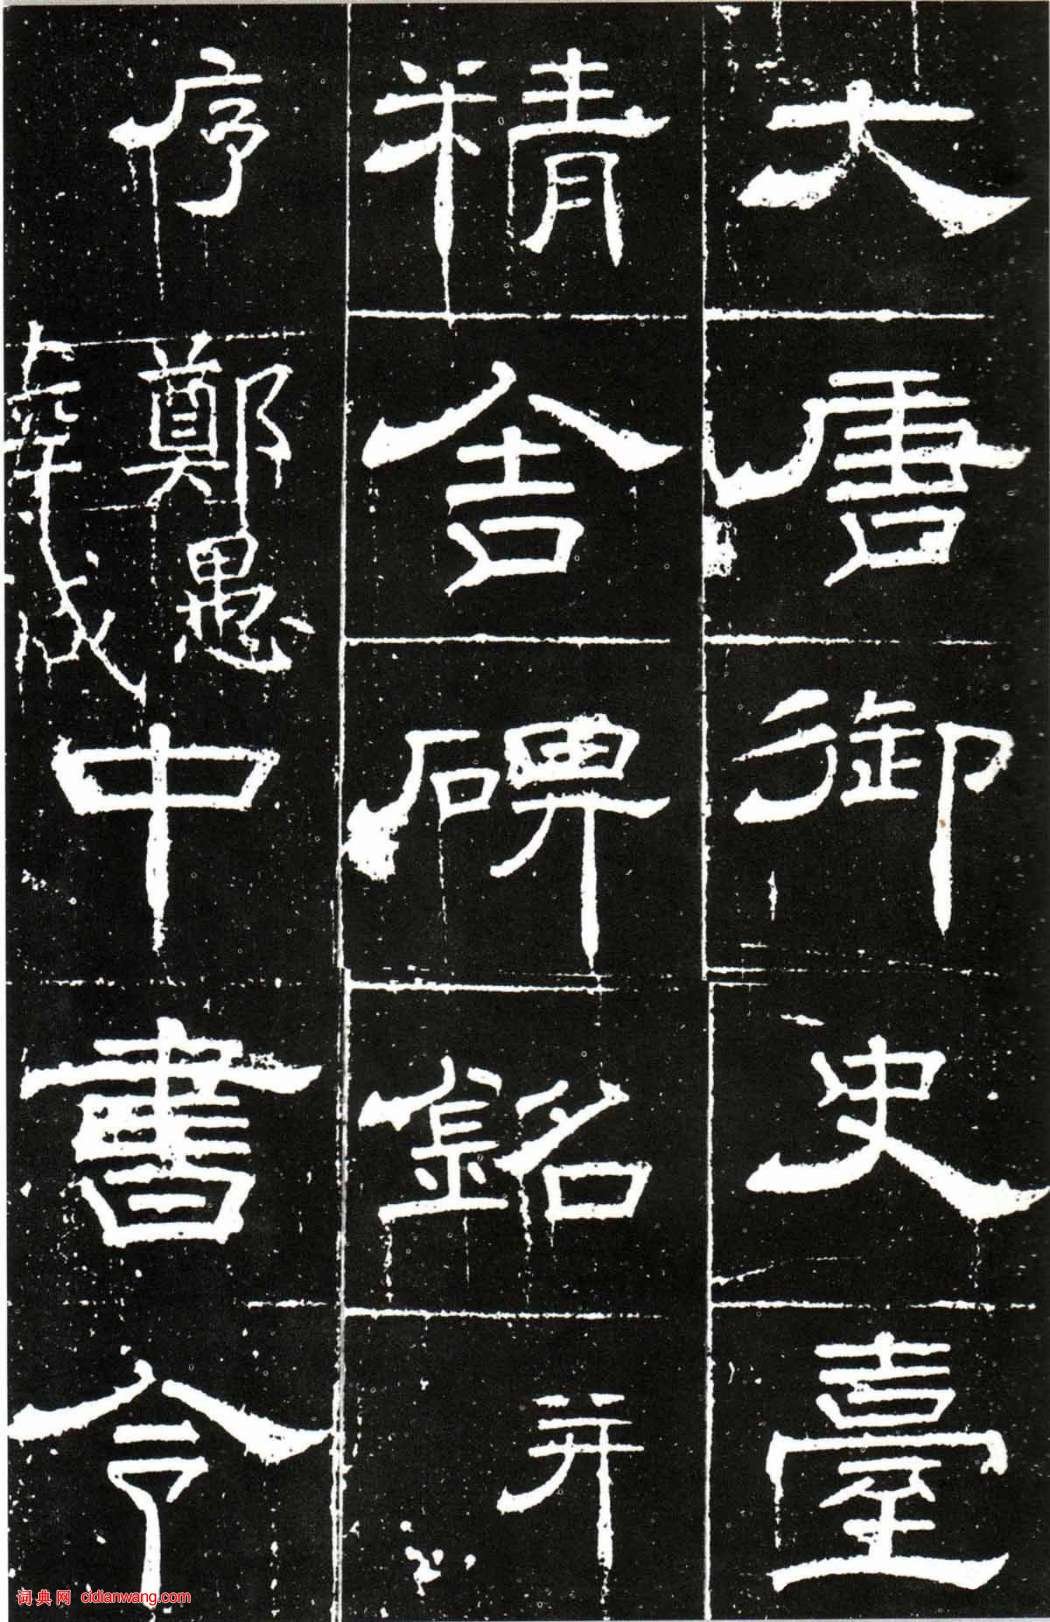 大唐御史臺
精舍碑銘并
序
鄭愚
中書令
词典网 cidianwang.com